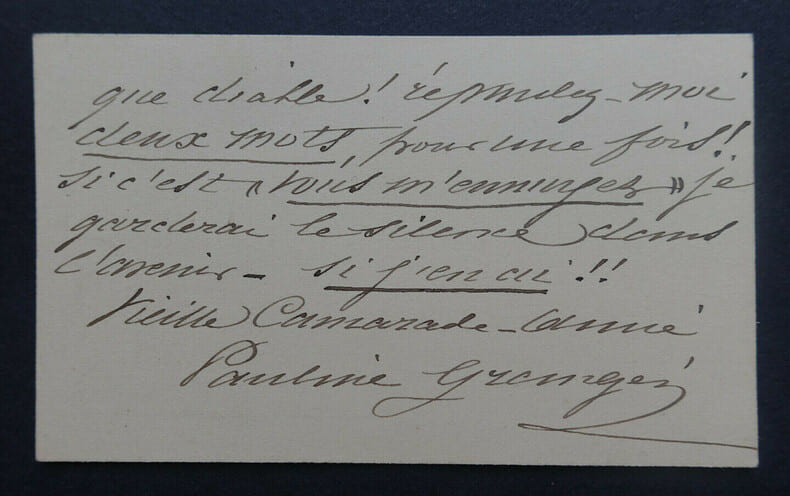 que diable! répondez-moi
deux mots, pour une fois!
si c'est « vous m'ennuyez » je
garderai le silence dans
l'avenir - si j'en ai!!
Vieille Camarade - Amie
Pauline Granger